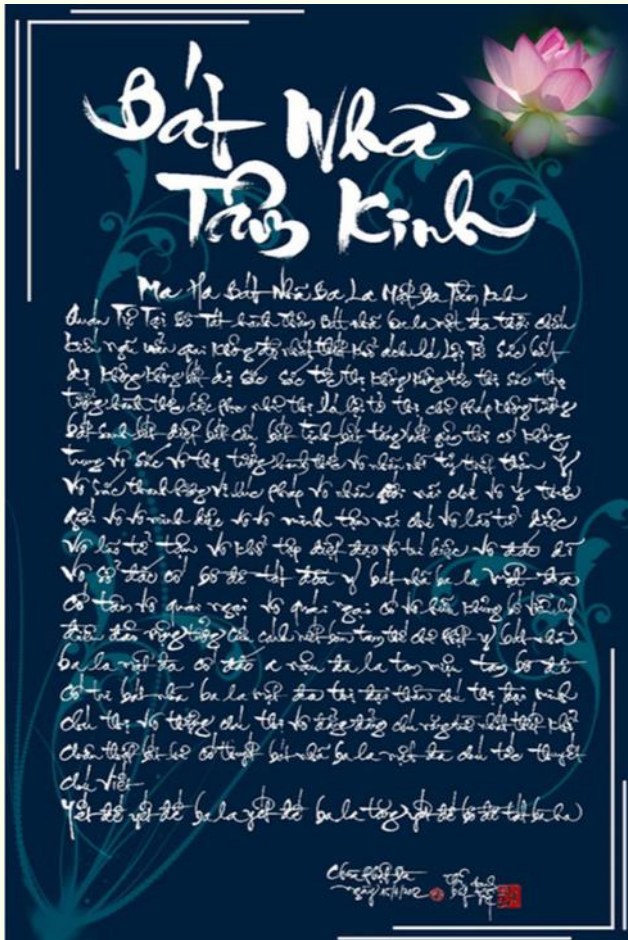 Bát Nhã
Tâm Kinh
Ma Ha Bát Nhã Ba La Mật Đa Tâm Kinh
Quán Tự Tại Bồ Tát hành thâm Bát nhã ba la mật đa thời chiếu
kiến ngũ uẩn giai không độ nhất thiết khổ ách Xá Lợi Tử Sắc bất
dị không không bất dị Sắc Sắc tức thị không không tức thị Sắc thọ
tưởng hành thức diệc phục như thị Xá lợi tử thị chư pháp không tướng
bất sanh bất diệt bất cấu bất tịnh bất tăng bất giảm thị cố không
trung vô Sắc vô thọ tưởng hành thức vô nhãn nhĩ tỷ thiệt thân ý
vô Sắc thanh hương vị xúc pháp vô nhãn giới nãi chí vô ý thức
giới vô vô minh diệc vô vô minh tận nãi chí vô lão tử diệc
vô lão tử tận vô khổ tập diệt đạo vô trí diệc vô đắc dĩ
vô Sở đắc cố bồ đề tát đỏa y bát nhã ba la mật đa
cố tâm vô quái ngại vô quái ngại cố vô hữu khủng bố viễn ly
điên đảo mộng tưởng cứu cánh niết bàn tam thế chư Phật y bát nhã
ba la mật đa cố đắc a nậu đa la tam miệu tam bồ đề
cố tri bát nhã ba la mật đa thị đại thần chú thị đại minh
chú thị vô thượng chú thị vô đẳng đẳng chú năng trừ nhất thiết khổ
chân thiệt bất hư cố thuyết bát nhã ba la mật đa chú tức thuyết
chú viết
Yết đế yết đế ba la yết đế ba la tăng yết đế bồ đề tát bà ha
ngày 15/11/2012